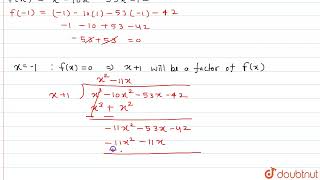 f(-1) = (-1) - 10(1) - 53(-1) - 42
-1 - 10 + 53 - 42
-53 + 53 = 0
x = -1 : f(x) = 0 ⇒ x+1 will be a factor of f(x)
x² - 11x
x+1 ) x³ - 10x² - 53x - 42
x³ + x²
-11x² - 53x - 42
-11x² - 11x
doubtnut